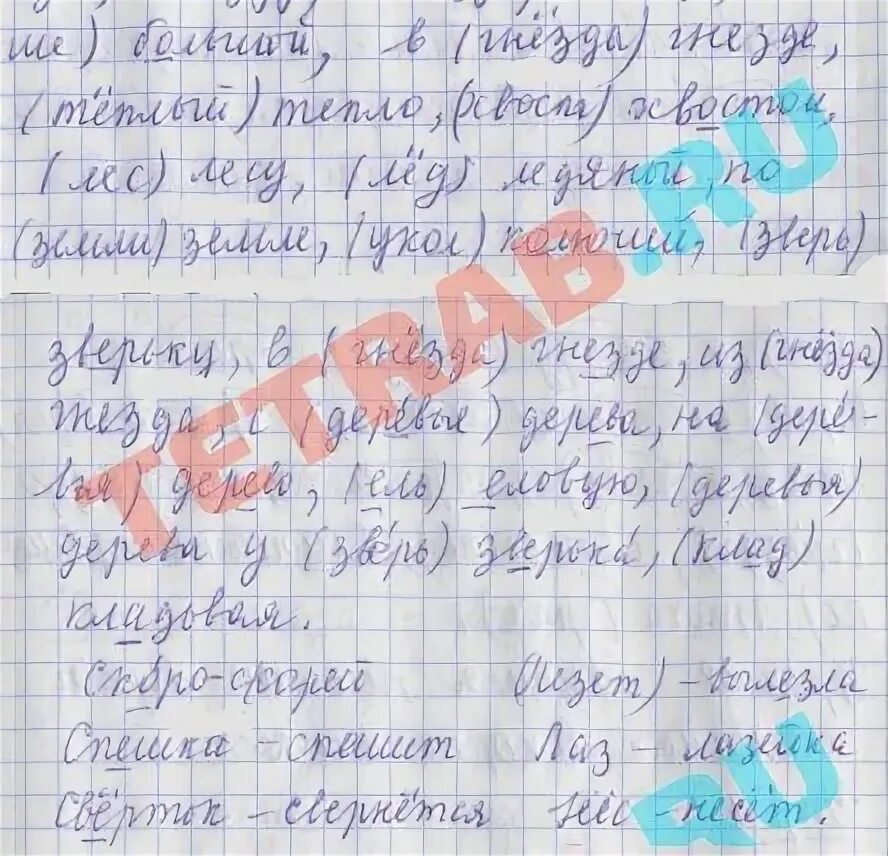 ше) большой, в (гнёзды) гнезде,
(тёплый) тепло, (хвоста) хвостом,
(лес) лесу, (лёд) ледяный, по
(земли) земле, (укол) колючий, (зверь)
зверьку, в (гнёзда) гнезде, из (гнёзда)
гнезда, с (деревья) дерева, на (дере-
вья) дерево, (ель) еловую, (деревья)
дерева у (зверь) зверька, (клад)
кладовая.
Скоро-скорей (лезет) - вылезла
Спешка - спешит Лаз - лазейка
Свёрток - свернётся Нёс - несёт.
TETRAB.RU
.RU